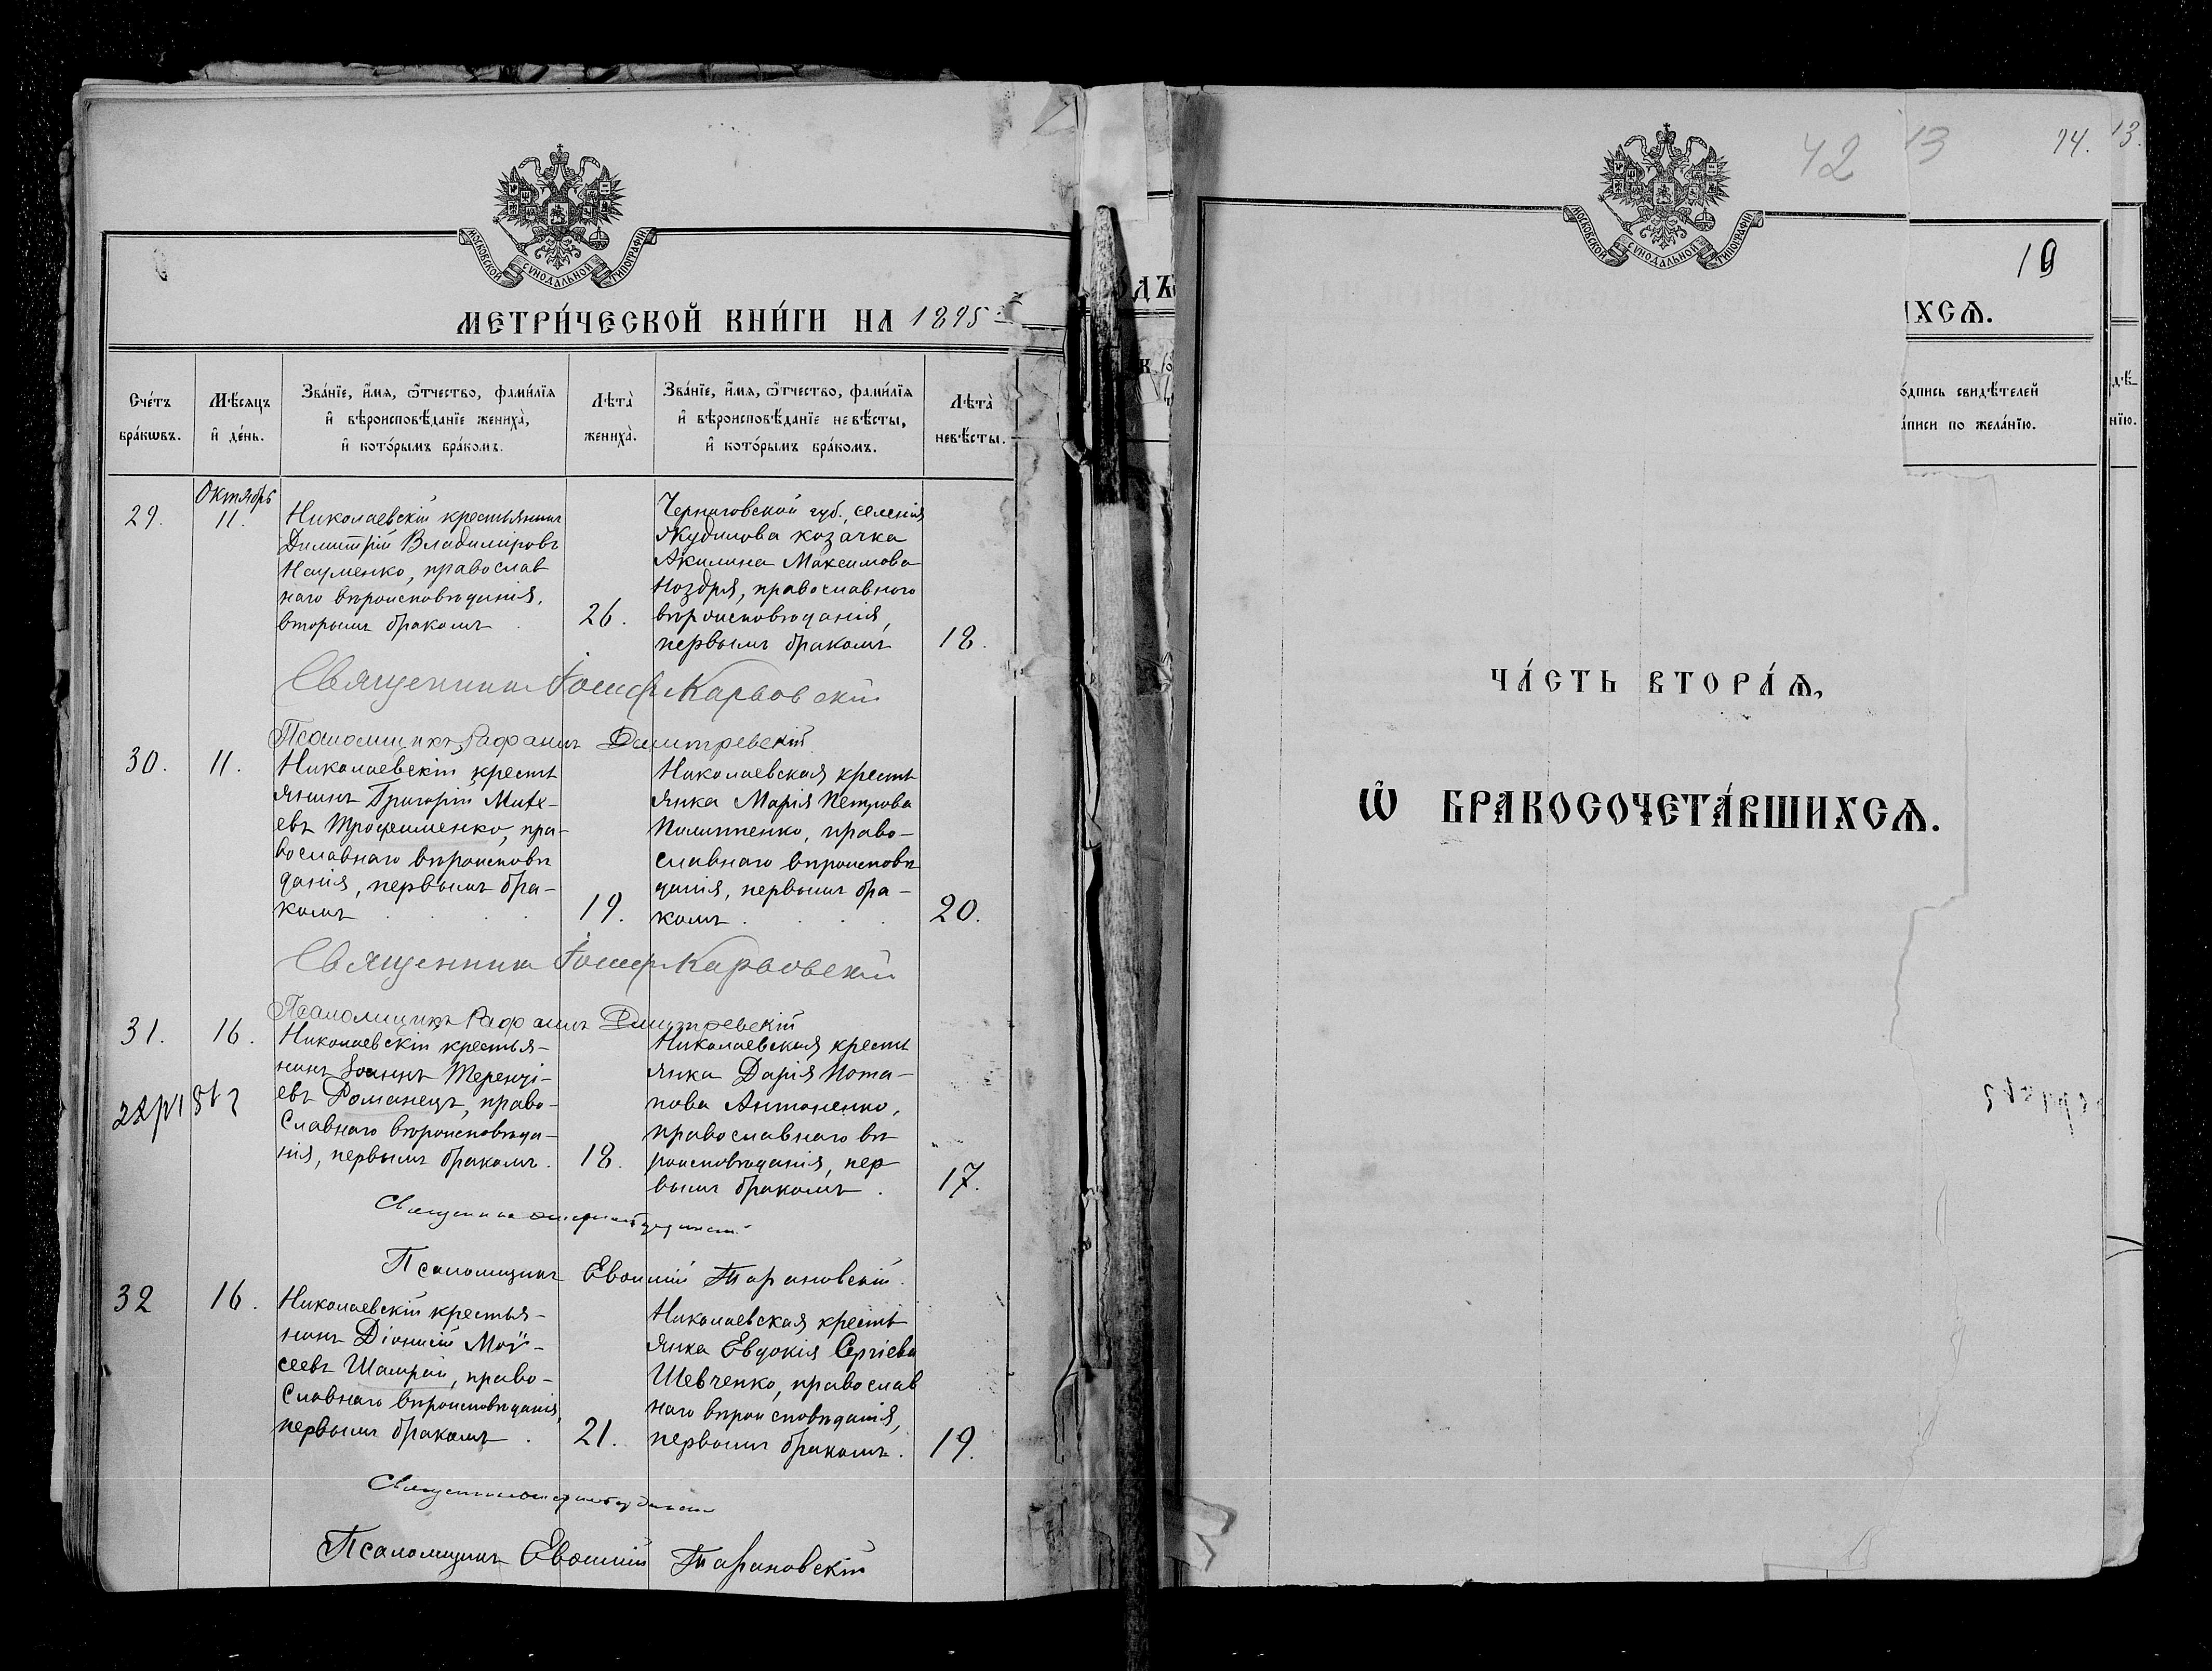 МОСКОВСКОЙ СѴНОДАЛЬНОЙ ТИПОГРАФІИ
МЕТРИ́ЧЕСКОЙ КНИ́ГИ НА 1895
Сче́тъ бра́кѡвъ.
Мѣ́сяцъ и҆ де́нь.
Зва́нїе, и҆́мя, ѻ҆́тчество, фами́лїя и҆ вѣроисповѣ́данїе жениха̀, и҆ кото́рымъ бра́комъ.
Лѣта̀ жениха̀.
Зва́нїе, и҆́мя, ѻ҆́тчество, фами́лїя и҆ вѣроисповѣ́данїе невѣ́сты, и҆ кото́рымъ бра́комъ.
Лѣта̀ невѣ́сты.
Октябрь
29.
11.
Николаевскій крестьянинъ
Димитрій Владиміровъ
Науменко, православ
наго вѣроисповѣданія,
вторымъ бракомъ
26.
Черниговской губ., селенія
козачка
Акилина Максимова
Ноздря, православнаго
вѣроисповѣданія,
первымъ бракомъ
18.
Священникъ Іосифъ Карвовскій
Псаломщикъ Дмитревскій
30.
11.
Николаевскій кресть
янинъ Григорій Матѳ-
евъ Трофименко, пра-
вославнаго вѣроисповѣ
данія, первымъ бра-
комъ
19.
Николаевская кресть
янка Марія Петрова
Пилипенко, право-
славнаго вѣроисповѣ
данія, первымъ бра-
комъ
20.
Священникъ Іосифъ Карвовскій
Псаломщикъ Дмитревскій
31.
16.
Николаевскій крестья-
нинъ Іоаннъ Теренті-
евъ Романецъ, право-
славнаго вѣроисповѣда-
нія, первымъ бракомъ.
18.
Николаевская кресть
янка Дарія Пота-
пова Антоненко,
православнаго вѣ
роисповѣданія, пер
вымъ бракомъ.
17.
Священникъ
Псаломщикъ Евѳимій Тарановскій.
32
16.
Николаевскій крестья-
нинъ Діонисій Моѵ-
сеевъ Шамрай, право-
славнаго вѣроисповѣданія,
первымъ бракомъ.
21.
Николаевская кресть
янка Евдокія Сергіева
Шевченко, православ
наго вѣроисповѣданія,
первымъ бракомъ.
19.
Священникъ
Псаломщикъ Евѳимій Тарановскій
42
13
14.
13.
МОСКОВСКОЙ СѴНОДАЛЬНОЙ ТИПОГРАФІИ
ИХСѦ.
о́дпись свидѣ́телей
а́писи по жела́нїю.
ЧА́СТЬ ВТОРА́Ѧ,
Ѽ БРАКОСОЧЕТА́ВШИХСѦ.